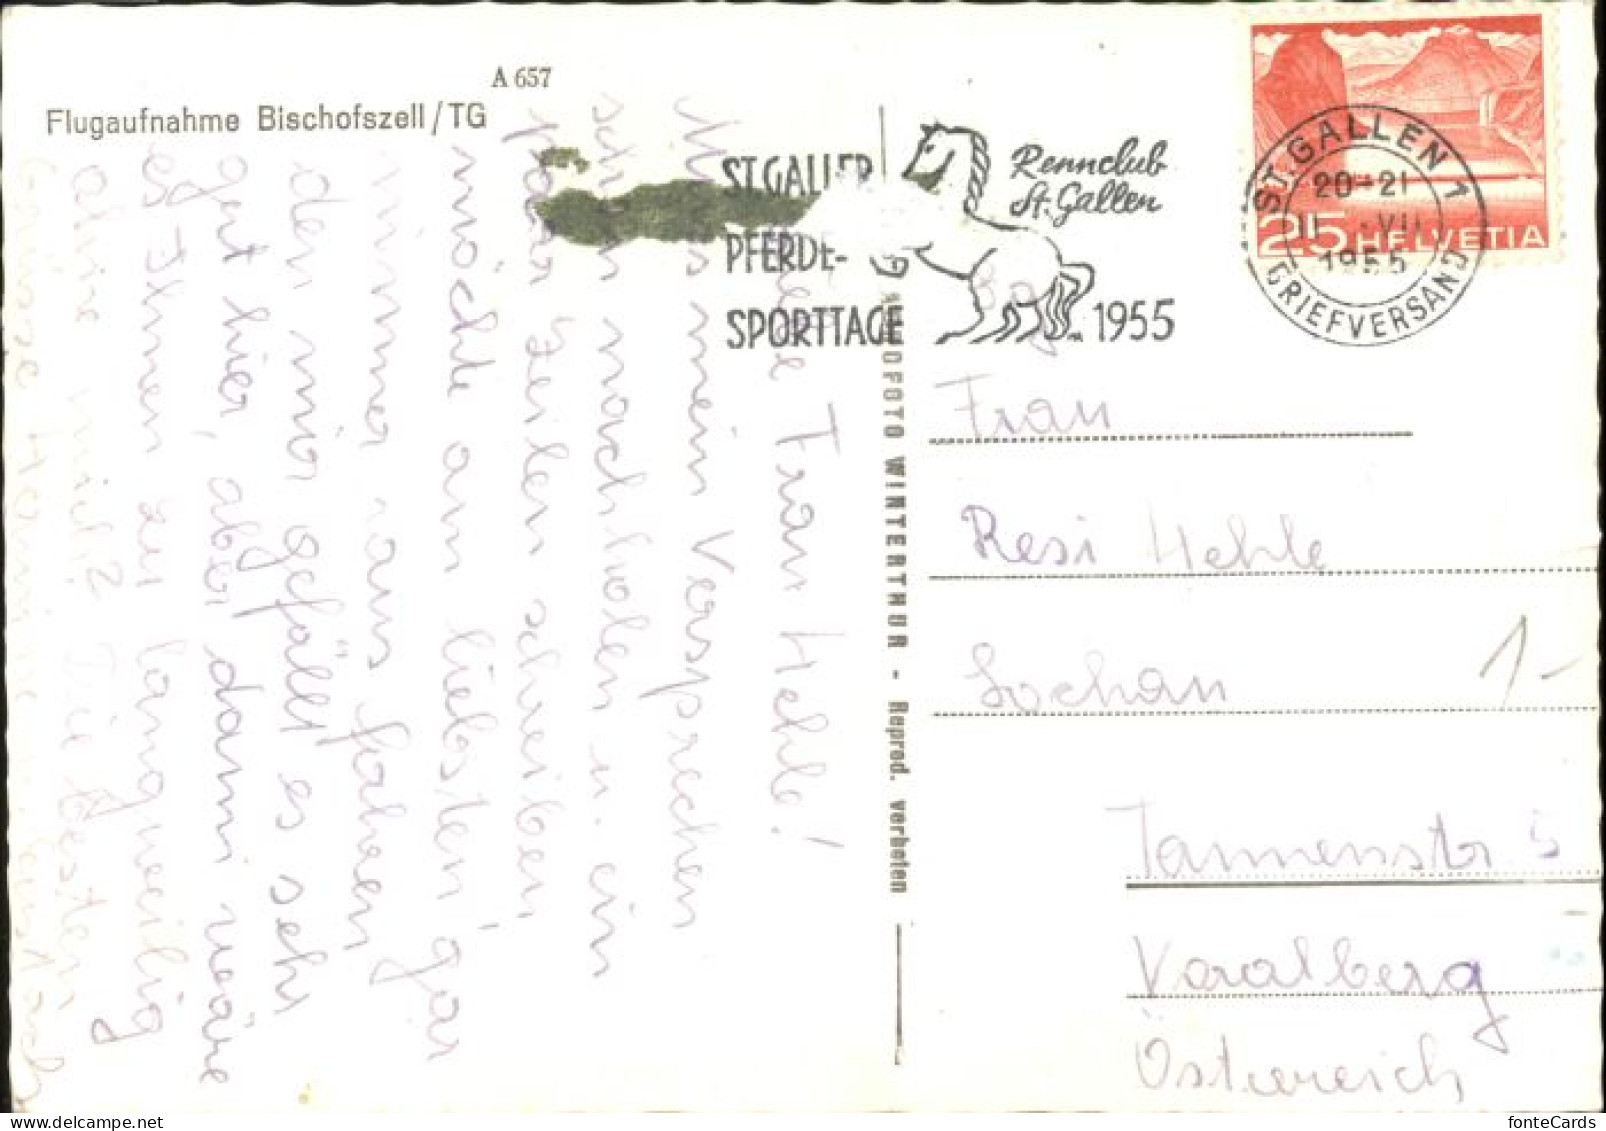 A 657
Flugaufnahme Bischofszell/TG
ST. GALLER
PFERDE-
SPORTTAGE
Rennclub
St. Gallen
1955
ST. GALLEN 1
20-21
VII
1955
BRIEFVERSAND
25 HELVETIA
Frau Hehle!
mein Versprechen
nachholen u. ein
paar Zeilen schreiben,
möchte am liebsten gar
nimmer aus fahren
den mir gefällt es sehr
gut hier, aber dann wäre
es Ihnen zu langweilig
ohne mich? Die besten
Grüsse Hermine
FOTO WINTERTHUR - Reprod. verboten
Frau
Resi Hehle
Lochau
Tannenstr. 5
Voralberg
Österreich
1-
fonteCards